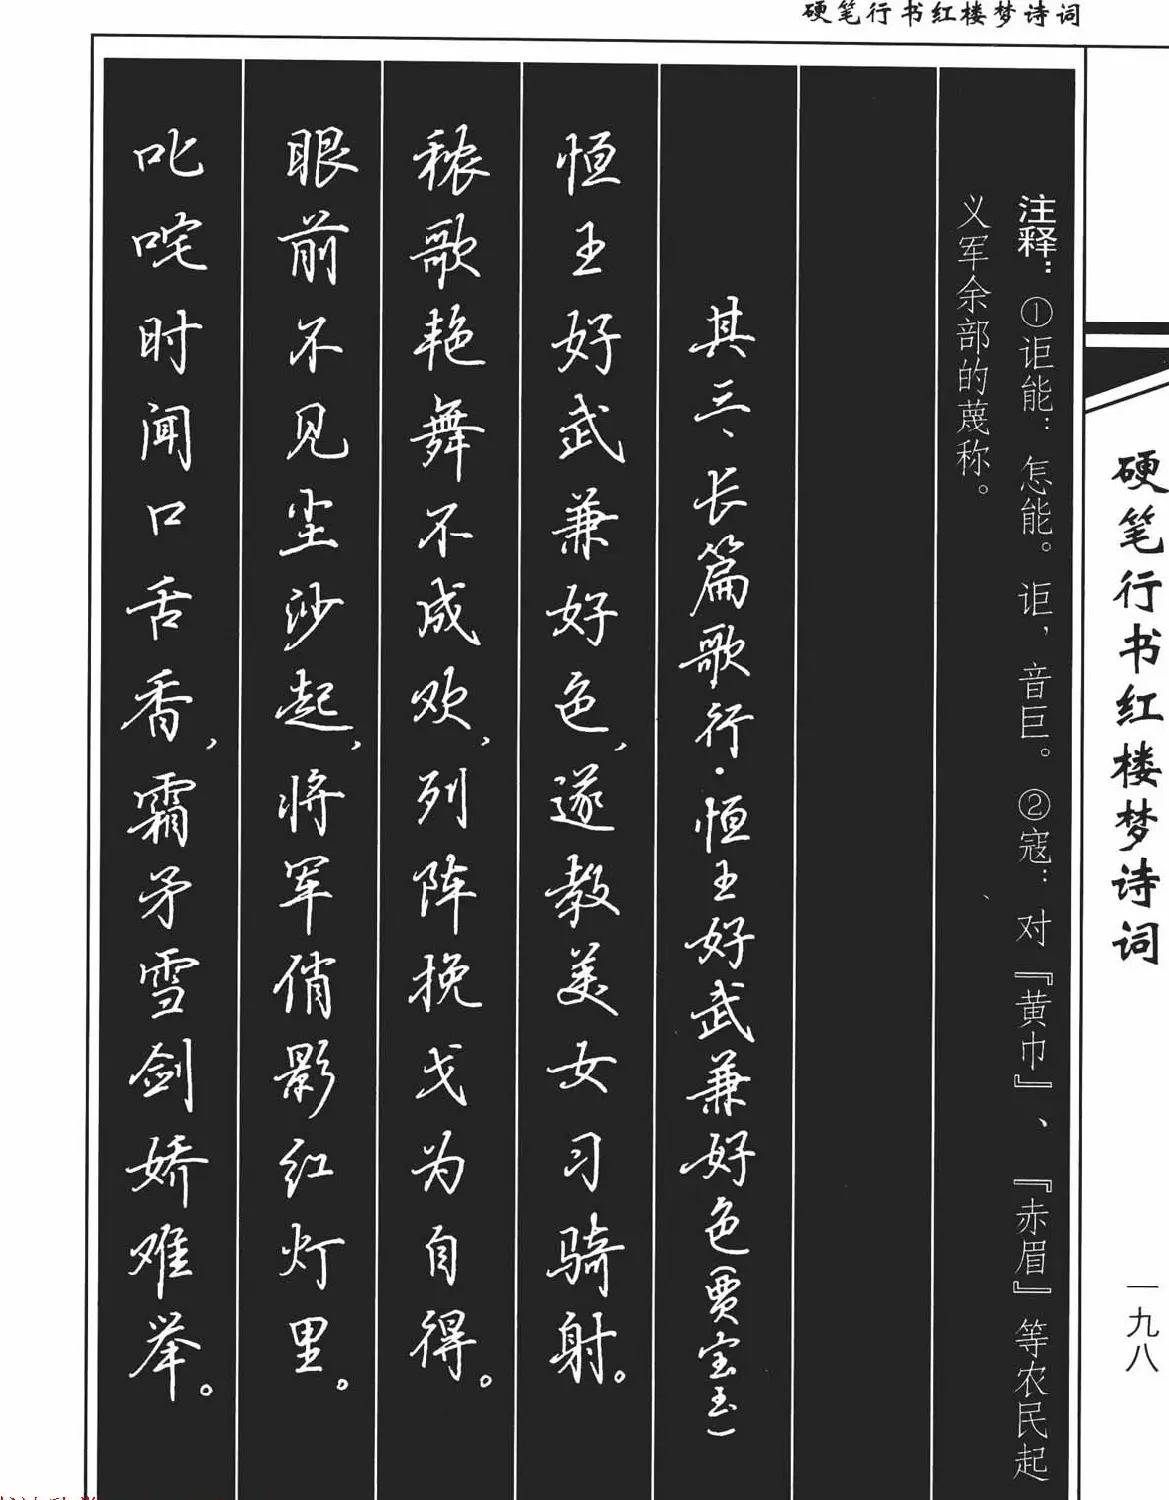 硬笔行书红楼梦诗词
硬笔行书红楼梦诗词
一九八
注释：①讵能：怎能。讵，音巨。②寇：对『黄巾』、『赤眉』等农民起
义军余部的蔑称。
其三、长篇歌行·恒王好武兼好色(贾宝玉)
恒王好武兼好色，遂教美女习骑射。
秾歌艳舞不成欢，列阵挽戈为自得。
眼前不见尘沙起，将军俏影红灯里。
叱咤时闻口舌香，霜矛雪剑娇难举。